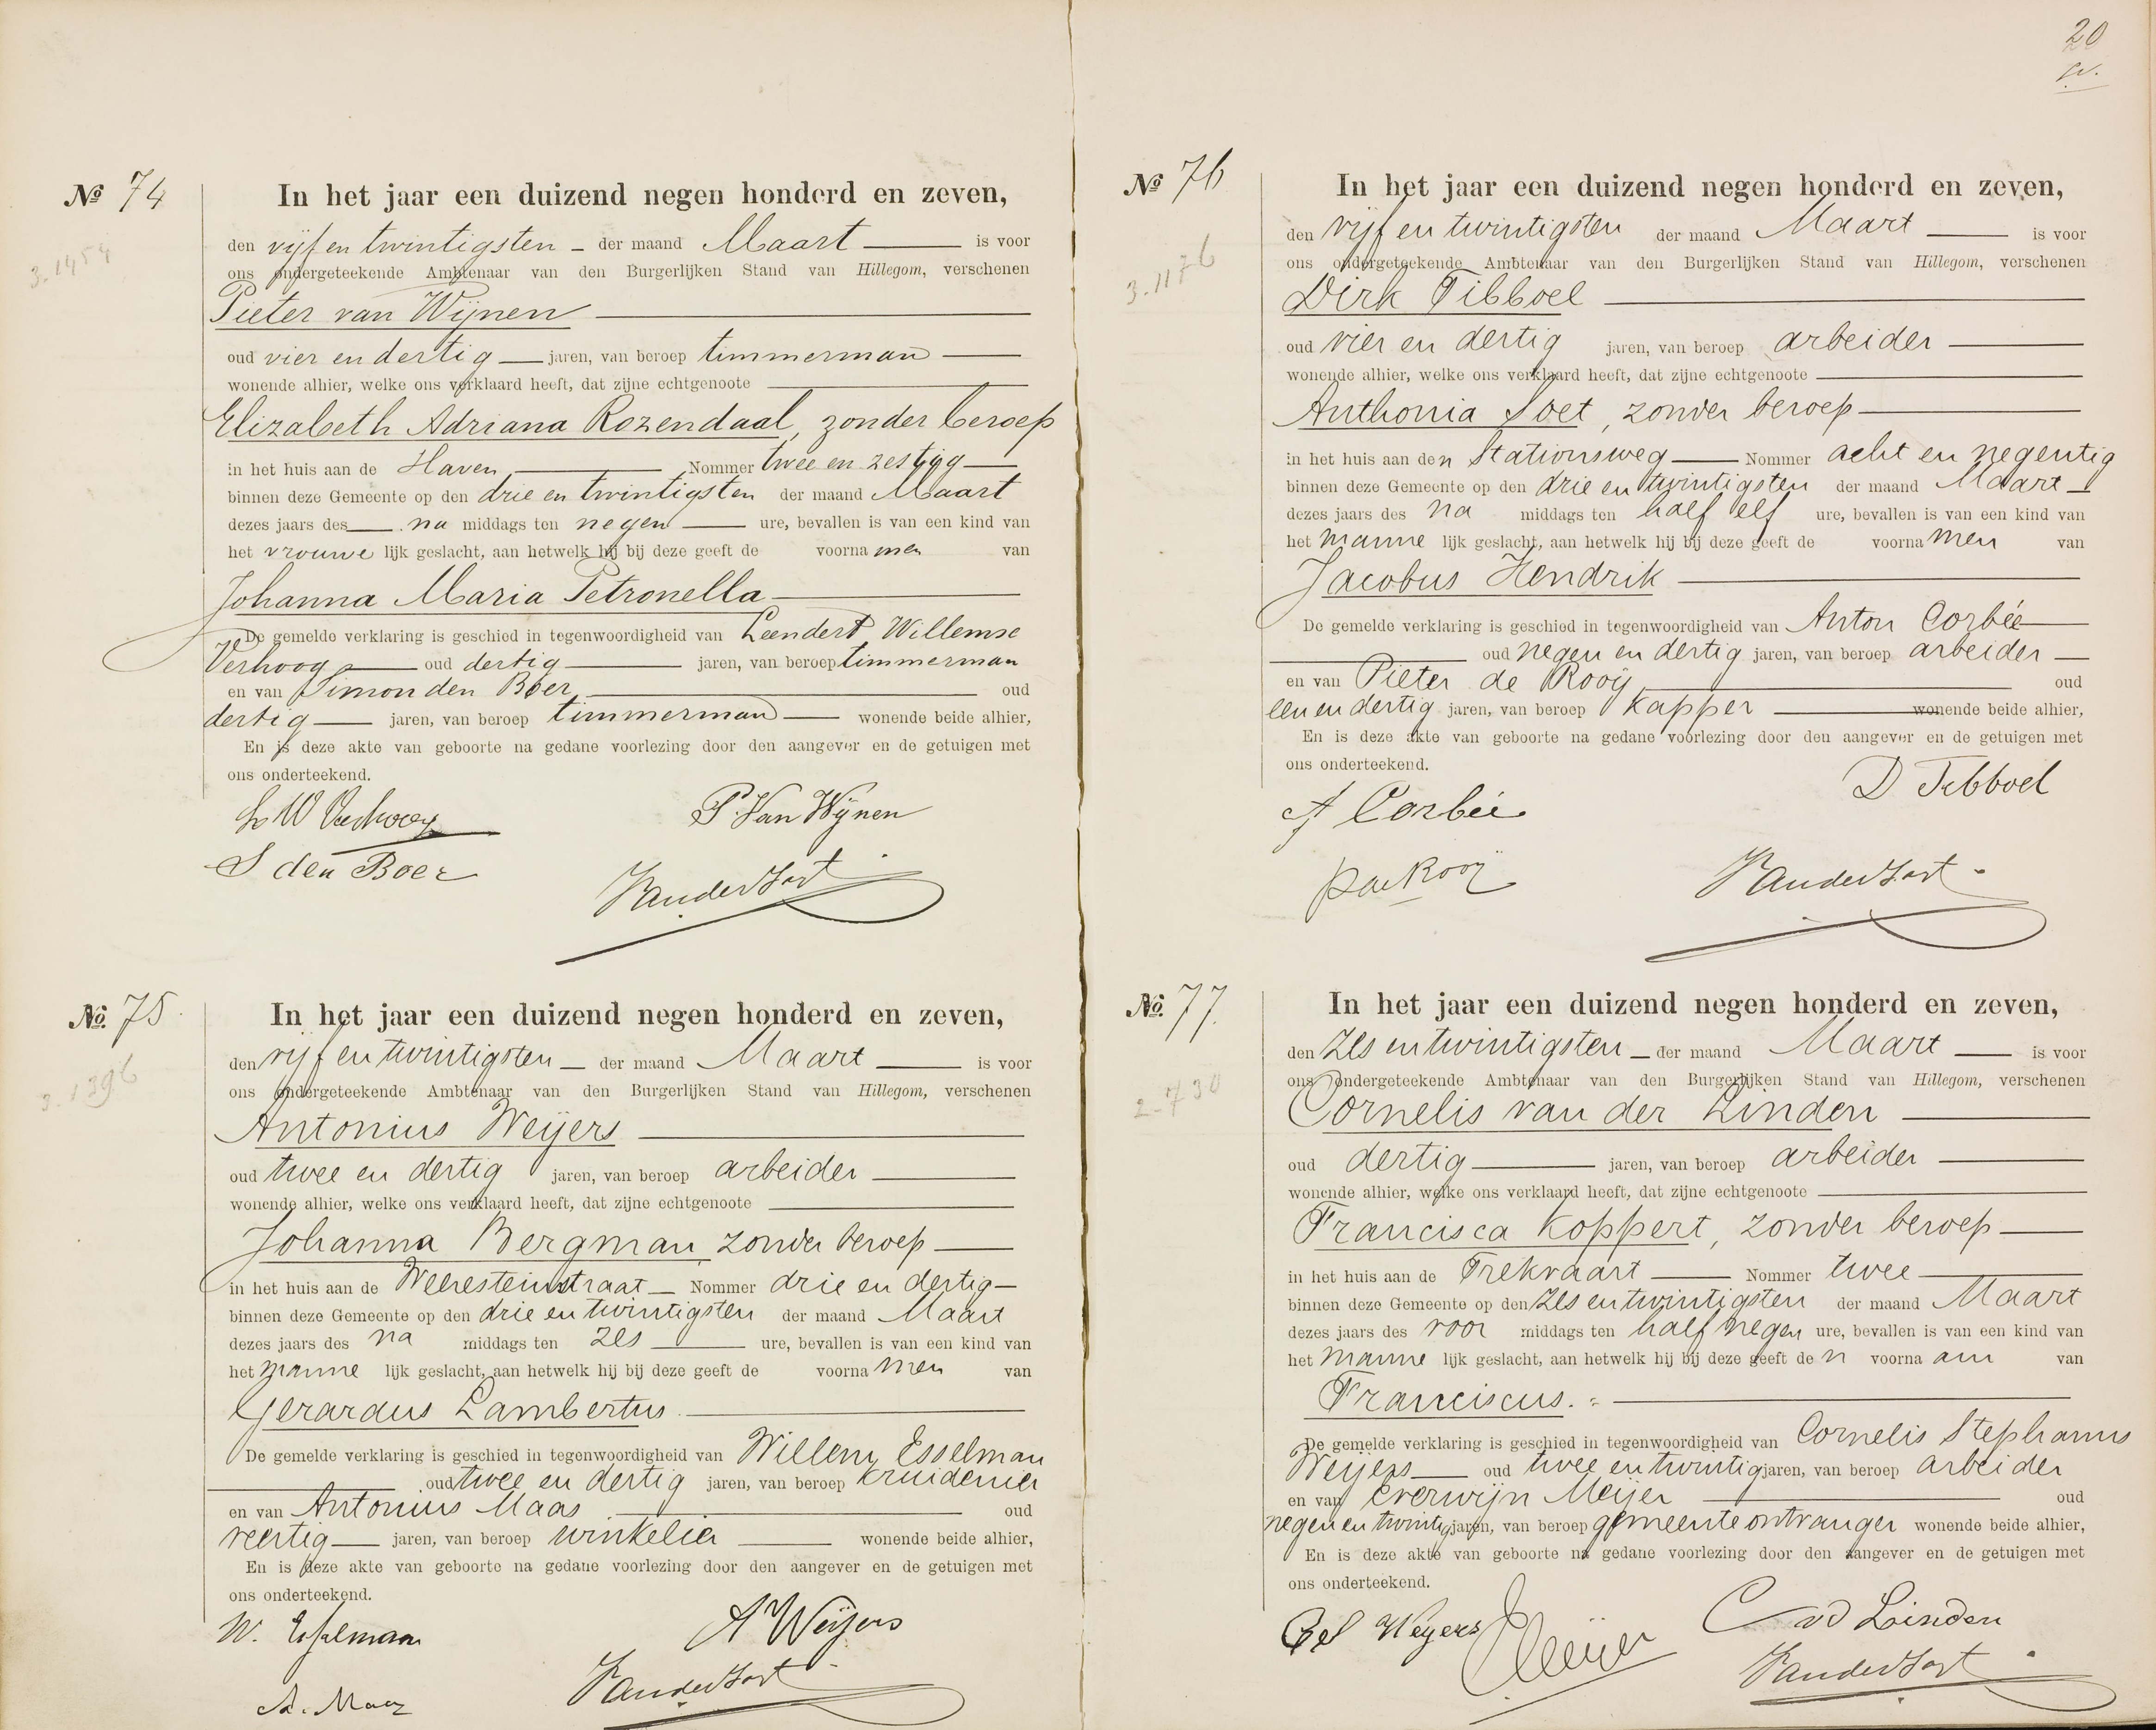 No 74
3.1454
In het jaar een duizend negen honderd en zeven,
den vijf en twintigsten – der maand Maart — is voor
ons ondergeteekende Ambtenaar van den Burgerlijken Stand van Hillegom, verschenen
Pieter van Wijnen
oud vier en dertig — jaren, van beroep timmerman —
wonende alhier, welke ons verklaard heeft, dat zijne echtgenoote
Elizabeth Adriana Rozendaal, zonder beroep
in het huis aan de Haven — Nommer twee en zestig —
binnen deze Gemeente op den drie en twintigsten der maand Maart
dezes jaars des — na middags ten negen — ure, bevallen is van een kind van
het vrouwe lijk geslacht, aan hetwelk hij bij deze geeft de voorna men van
Johanna Maria Petronella
De gemelde verklaring is geschied in tegenwoordigheid van Leendert Willemse
Verhoog — oud dertig — jaren, van beroep timmerman
en van Simon den Boer — oud
dertig — jaren, van beroep timmerman — wonende beide alhier,
En is deze akte van geboorte na gedane voorlezing door den aangever en de getuigen met
ons onderteekend.
L W Verhoog P. Van Wijnen
S den Boer
VanderZart
No. 75.
3.1396
In het jaar een duizend negen honderd en zeven,
den vijf en twintigsten – der maand Maart — is voor
ons ondergeteekende Ambtenaar van den Burgerlijken Stand van Hillegom, verschenen
Antonius Weijers
oud twee en dertig jaren, van beroep arbeider —
wonende alhier, welke ons verklaard heeft, dat zijne echtgenoote
Johanna Bergman zonder beroep —
in het huis aan de Weeresteinstraat – Nommer drie en dertig –
binnen deze Gemeente op den drie en twintigsten der maand Maart
dezes jaars des na middags ten zes — ure, bevallen is van een kind van
het manne lijk geslacht, aan hetwelk hij bij deze geeft de voorna men van
Gerardus Lambertus
De gemelde verklaring is geschied in tegenwoordigheid van Willem Esselman
oud twee en dertig jaren, van beroep kruidenier
en van Antonius Maas — oud
veertig — jaren, van beroep winkelier — wonende beide alhier,
En is deze akte van geboorte na gedane voorlezing door den aangever en de getuigen met
ons onderteekend.
W. Esselman A Weijers
A. Maas VanderZart
20
No 76
3.1176
In het jaar een duizend negen honderd en zeven,
den vijf en twintigsten der maand Maart — is voor
ons ondergeteekende Ambtenaar van den Burgerlijken Stand van Hillegom, verschenen
Dirk Tibboel
oud vier en dertig jaren, van beroep arbeider —
wonende alhier, welke ons verklaard heeft, dat zijne echtgenoote
Anthonia Soet, zonder beroep —
in het huis aan den Stationsweg — Nommer acht en negentig
binnen deze Gemeente op den drie en twintigsten der maand Maart –
dezes jaars des na middags ten half elf ure, bevallen is van een kind van
het manne lijk geslacht, aan hetwelk hij bij deze geeft de voorna men van
Jacobus Hendrik
De gemelde verklaring is geschied in tegenwoordigheid van Anton Corbée
oud negen en dertig jaren, van beroep arbeider —
en van Pieter de Rooij — oud
een en dertig jaren, van beroep kapper — wonende beide alhier,
En is deze akte van geboorte na gedane voorlezing door den aangever en de getuigen met
ons onderteekend.
D Tibboel
A Corbée
P de Rooij VanderZart
No. 77.
2-730
In het jaar een duizend negen honderd en zeven,
den zes en twintigsten – der maand Maart — is voor
ons ondergeteekende Ambtenaar van den Burgerlijken Stand van Hillegom, verschenen
Cornelis van der Linden
oud dertig — jaren, van beroep arbeider —
wonende alhier, welke ons verklaard heeft, dat zijne echtgenoote
Francisca Koppert, zonder beroep —
in het huis aan de Trekvaart — Nommer twee —
binnen deze Gemeente op den zes en twintigsten der maand Maart
dezes jaars des voor middags ten half negen ure, bevallen is van een kind van
het manne lijk geslacht, aan hetwelk hij bij deze geeft de n voorna am van
Franciscus.
De gemelde verklaring is geschied in tegenwoordigheid van Cornelis Stephanus
Weijers — oud twee en twintig jaren, van beroep arbeider
en van Everwijn Meijer — oud
negen en twintig jaren, van beroep gemeenteontvanger wonende beide alhier,
En is deze akte van geboorte na gedane voorlezing door den aangever en de getuigen met
ons onderteekend.
Weyers Meijer C vd Linden
VanderZart